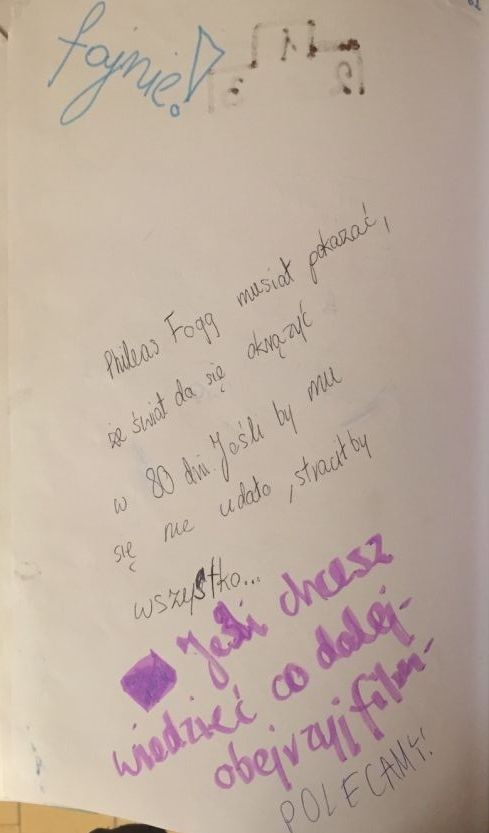 fajnie!
Phileas Fogg musiał pokazać,
że świat da się okrążyć
w 80 dni. Jeśli by mu
się nie udało, straciłby
wszystko...
Jeśli chcesz
wiedzieć co dalej-
obejrzyj film-
POLECAMY!